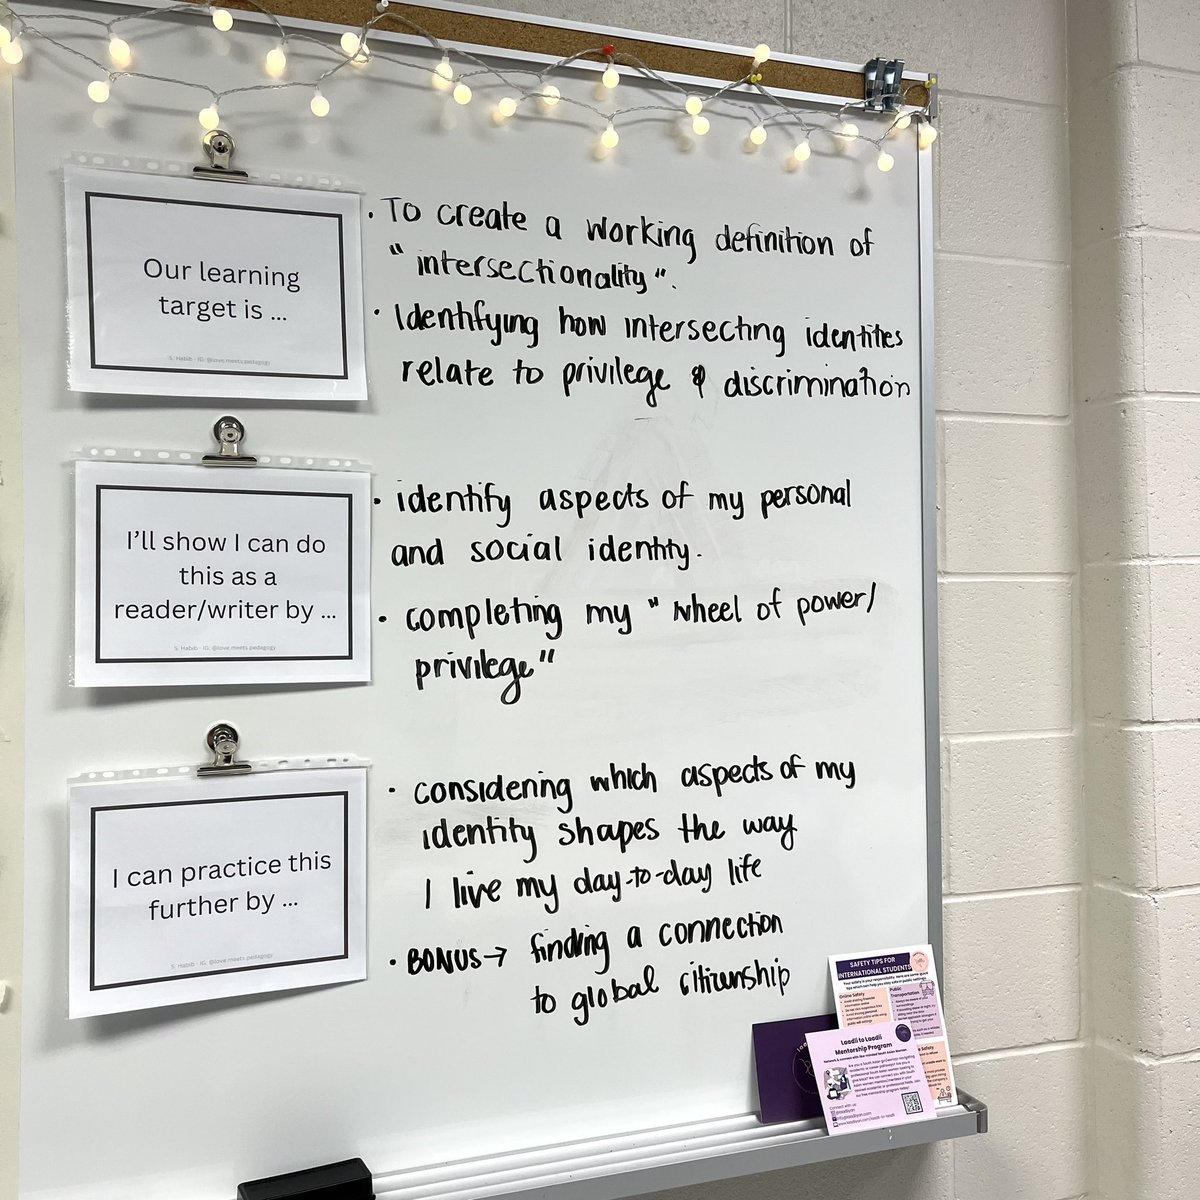 Our learning
target is ...
S. Habib - IG: @love.meets.pedagogy
• To create a working definition of
"intersectionality".
• Identifying how intersecting identities
relate to privilege & discrimination
I'll show I can do
this as a
reader/writer by ...
S. Habib - IG: @love.meets.pedagogy
• identify aspects of my personal
and social identity.
• completing my "wheel of power/
privilege"
I can practice this
further by ...
S. Habib - IG: @love.meets.pedagogy
• considering which aspects of my
identity shapes the way
I live my day-to-day life
• BONUS → finding a connection
to global citizenship
SAFETY TIPS FOR
INTERNATIONAL STUDENTS
Online Safety
Public
Transportation
Laadli to Laadli
Mentorship Program
Connect with us: